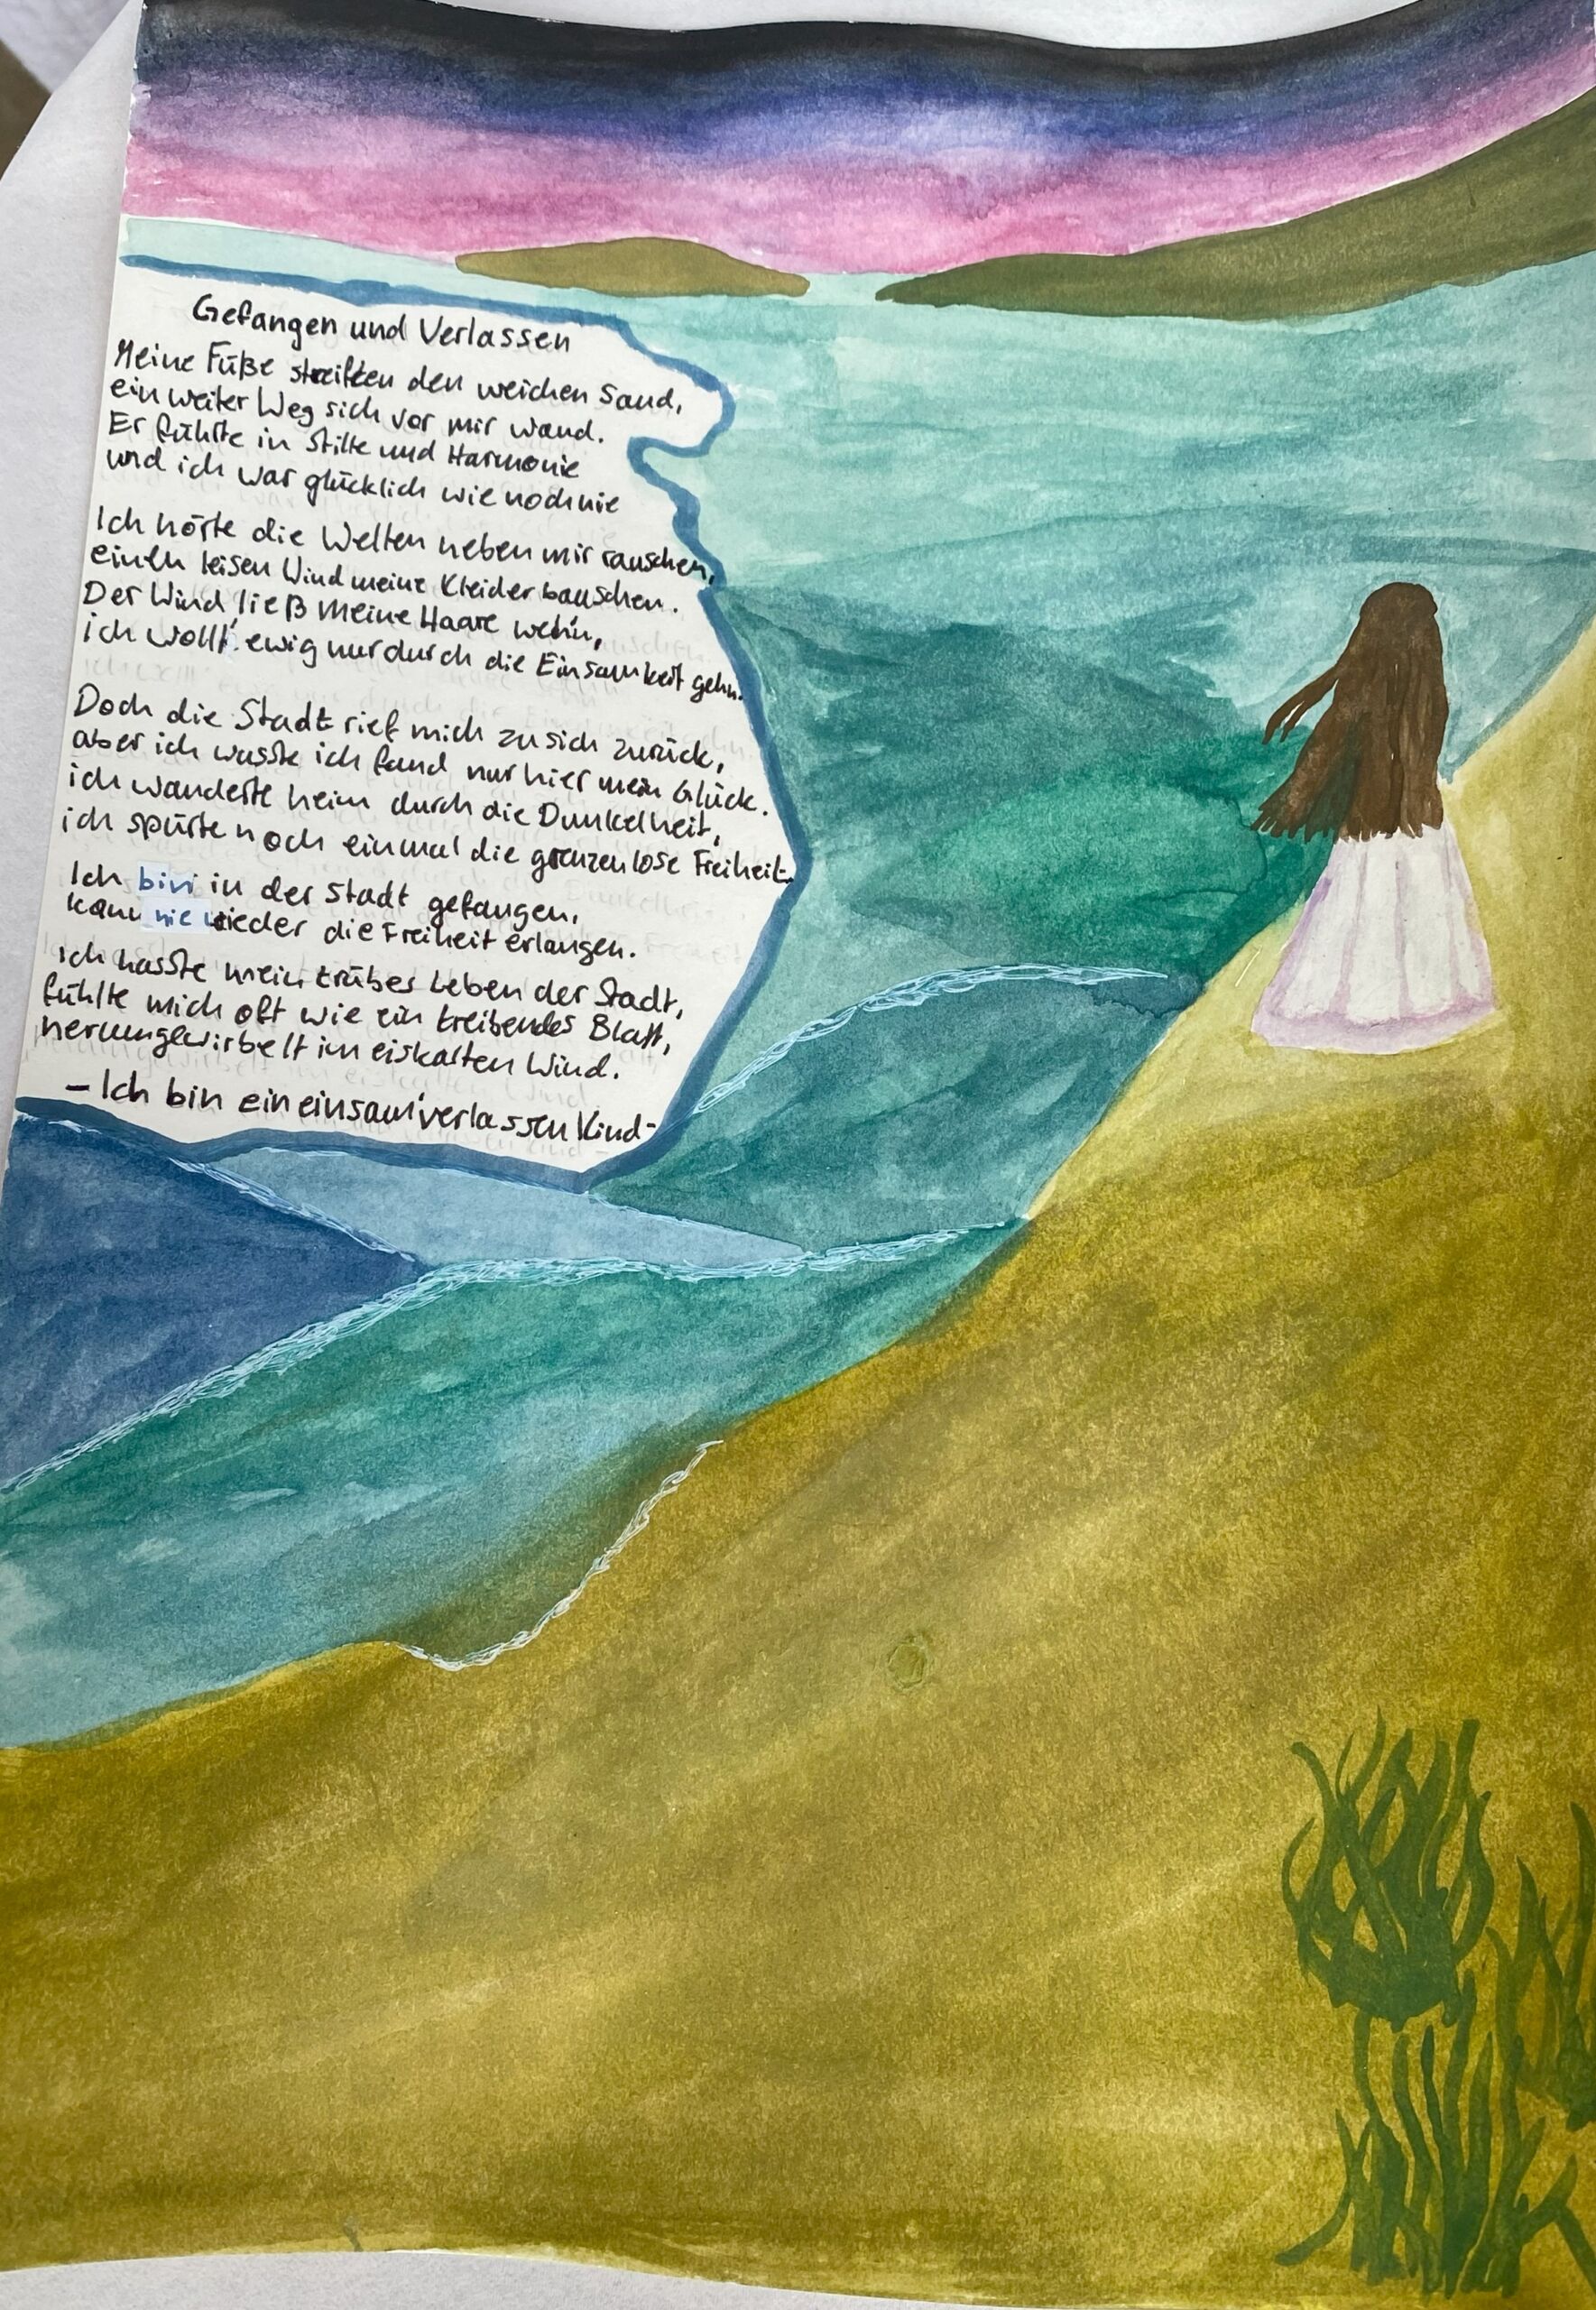 Gefangen und Verlassen
Meine Füße streiften den weichen Sand,
ein weiter Weg sich vor mir wand.
Er führte in Stille und Harmonie
und ich war glücklich wie noch nie
Ich hörte die Wellen neben mir rauschen,
einen leisen Wind meine Kleider bauschen.
Der Wind ließ meine Haare weh'n,
ich wollt' ewig nur durch die Einsamkeit gehn.
Doch die Stadt rief mich zu sich zurück,
aber ich wusste ich fand nur hier mein Glück.
ich wanderte heim durch die Dunkelheit,
ich spürte noch einmal die grenzenlose Freiheit.
Ich bin in der Stadt gefangen,
kann nie wieder die Freiheit erlangen.
Ich hasste mein trübes Leben der Stadt,
fühlte mich oft wie ein treibendes Blatt,
herumgewirbelt im eiskalten Wind.
- Ich bin ein einsam' verlassen Kind -